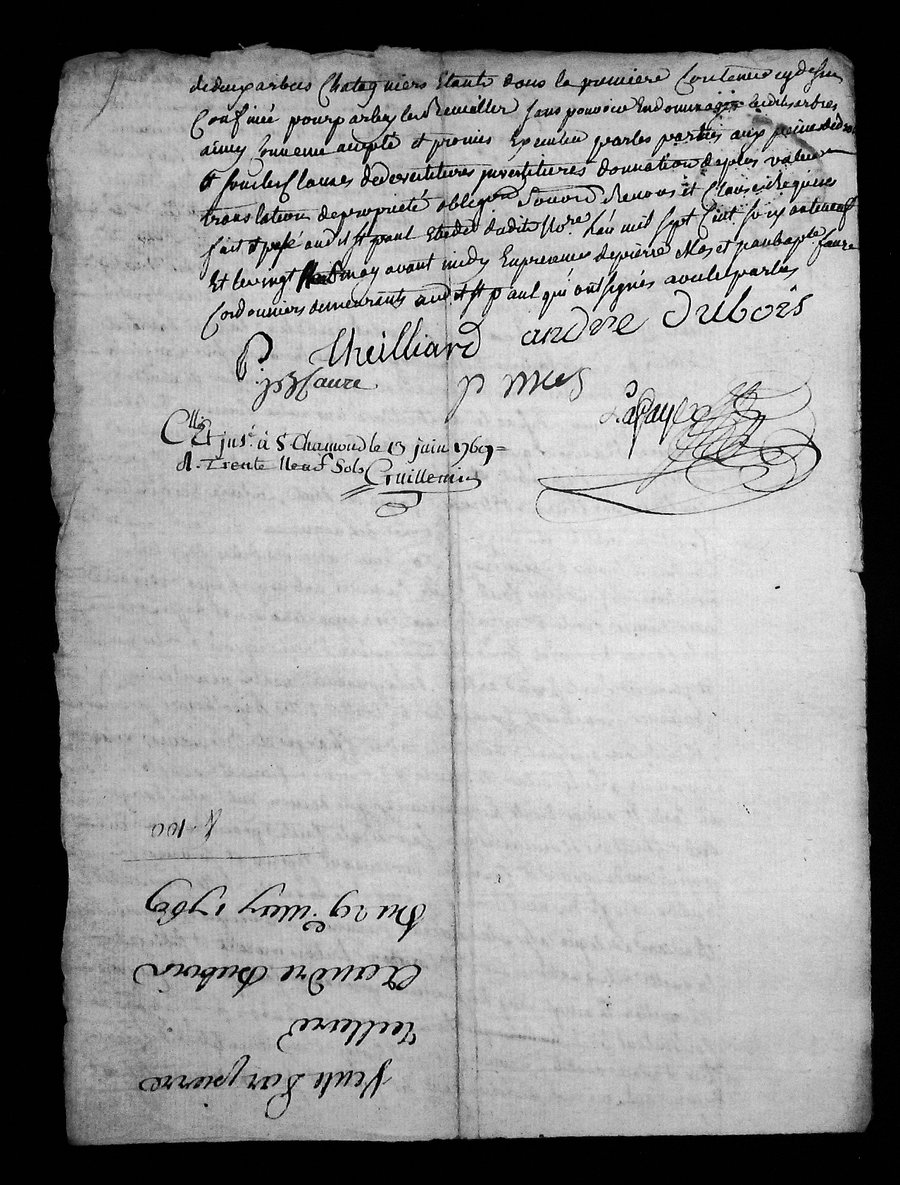 de deux arbres Chatagniers Etants dans la premiere Contenue cy dessus
Confinée pour par les Remettre sans pouvoir Endommager lesdits arbres
ainsy Convenu accepté et promis Executer par les parties aux peines de droit
et sous les Clauses de devestitures investitures donnation de plus valeur
translation de propriété obligaon Soumon Renonon et Clauses Requises
fait et passé audit St paul Etude dudit Nore. L'an mil sept Cent soixante neuf
Et le vingt neuf may avant midy En presences de pierre Mas et jean bapte faure
Cordonniers demeurants audit St paul qui ont signés avec les parties
P. theilliard andré dubois
jB faure p mas
Lafayex
Cllé Et insé. à St Chamond le 13 juin 1769 =
R. Trente Neuf Sols Guillemin
Vente par pierre
Teillard
A andré dubois
Du 29e. may 1769
100